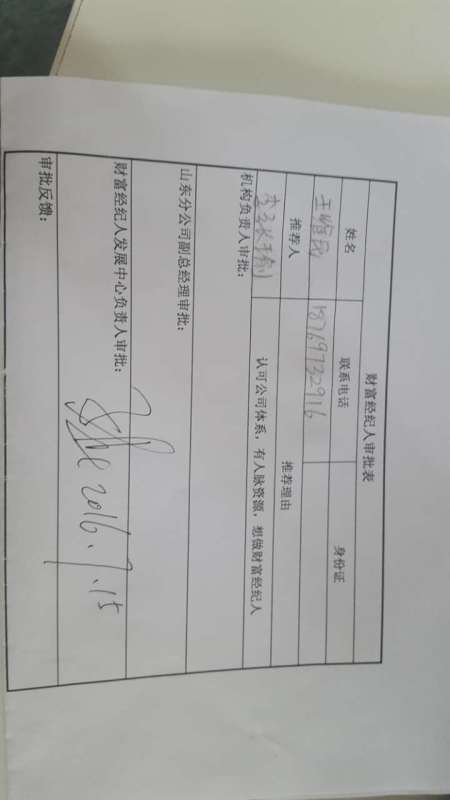 财富经纪人审批表
姓名 联系电话 身份证
18769732916
推荐人 推荐理由
认可公司体系，有人脉资源，想做财富经纪人
机构负责人审批：
山东分公司副总经理审批：
财富经纪人发展中心负责人审批：
2016.9.15
审批反馈：